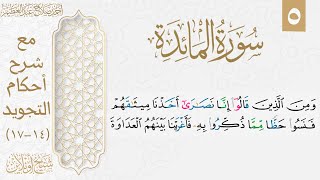 ٥
سورة المائدة
مع
شرح
أحكام
التجويد
(١٤-١٧)
وَمِنَ ٱلَّذِينَ قَالُوٓا۟ إِنَّا نَصَـٰرَىٰٓ أَخَذْنَا مِيثَـٰقَهُمْ
فَنَسُوا۟ حَظًّا مِّمَّا ذُكِّرُوا۟ بِهِۦ فَأَغْرَيْنَا بَيْنَهُمُ ٱلْعَدَاوَةَ